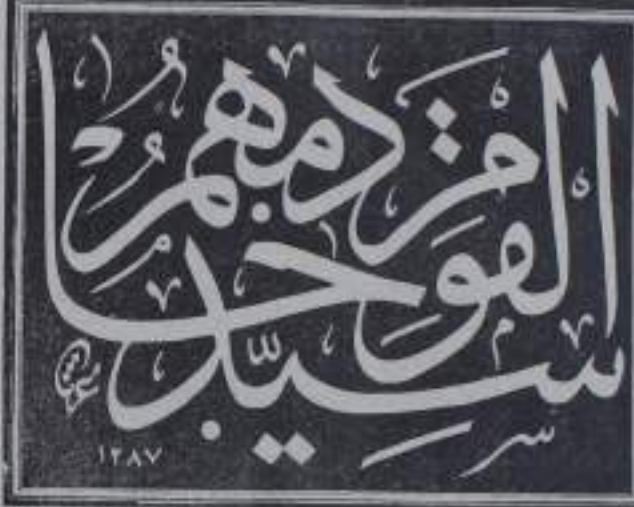 سيد القوم خادمهم
١٢٨٧